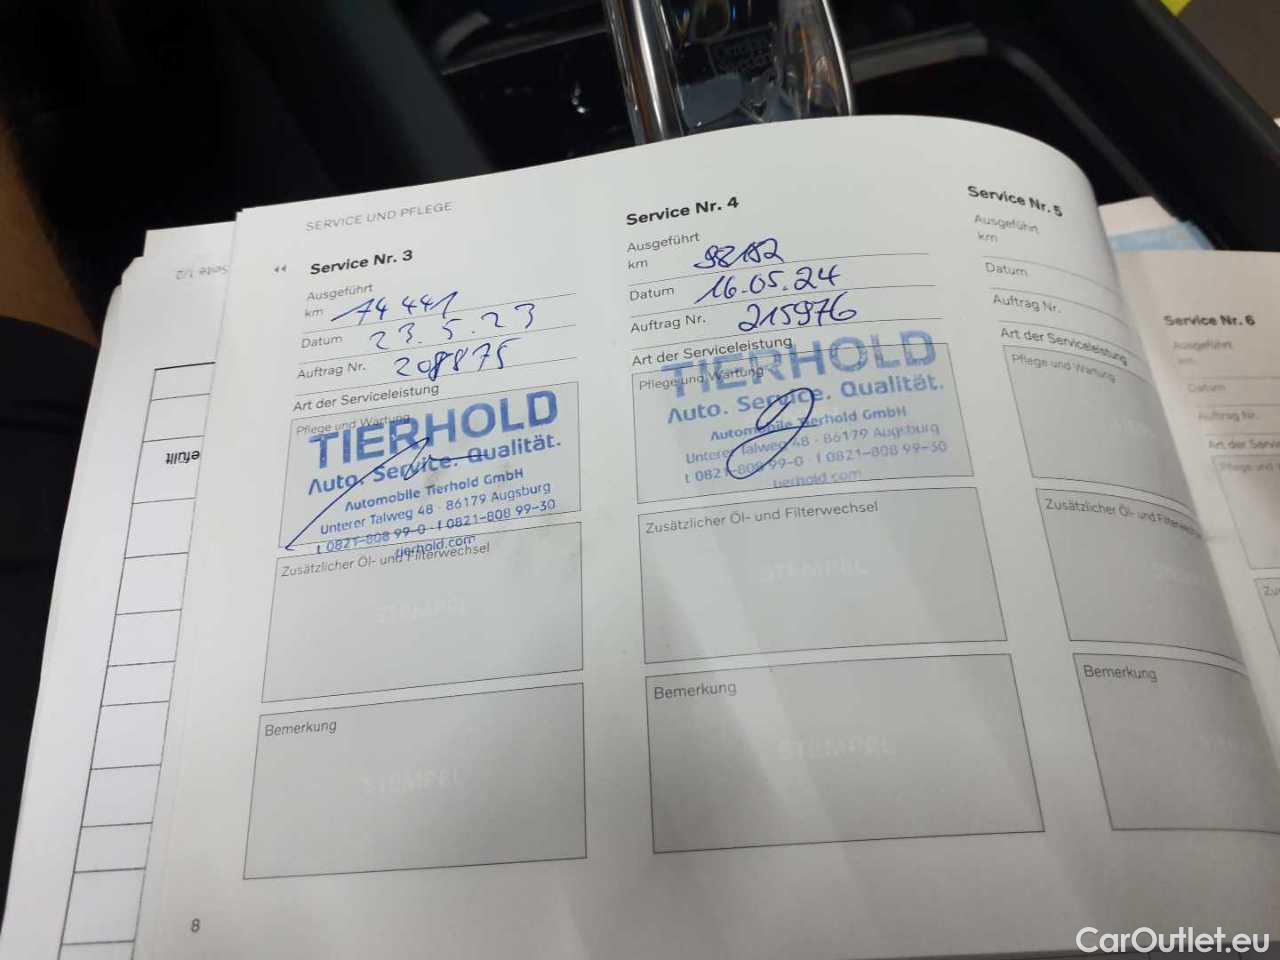 SERVICE UND PFLEGE
Service Nr. 3
Ausgeführt
km 74 441
Datum 23.5.23
Auftrag Nr. 208875
Art der Serviceleistung
Pflege und Wartung
TIERHOLD
Auto. Service. Qualität.
Automobile Tierhold GmbH
Unterer Talweg 48 · 86179 Augsburg
t 0821-808 99-0 · f 0821-808 99-30
tierhold.com
Zusätzlicher Öl- und Filterwechsel
STEMPEL
Bemerkung
STEMPEL
8
Service Nr. 4
Ausgeführt
km 98152
Datum 16.05.24
Auftrag Nr. 215976
Art der Serviceleistung
Pflege und Wartung
TIERHOLD
Auto. Service. Qualität.
Automobile Tierhold GmbH
Unterer Talweg 48 · 86179 Augsburg
t 0821-808 99-0 f 0821-808 99-30
tierhold.com
Zusätzlicher Öl- und Filterwechsel
STEMPEL
Bemerkung
STEMPEL
Service Nr. 5
Ausgeführt
km
Datum
Auftrag Nr.
Art der Serviceleistung
Pflege und Wartung
Zusätzlicher Öl- und Filterwechsel
Bemerkung
Service Nr. 6
Ausgeführt
km
Datum
Auftrag Nr.
Art der
Pflege und
CarOutlet.eu